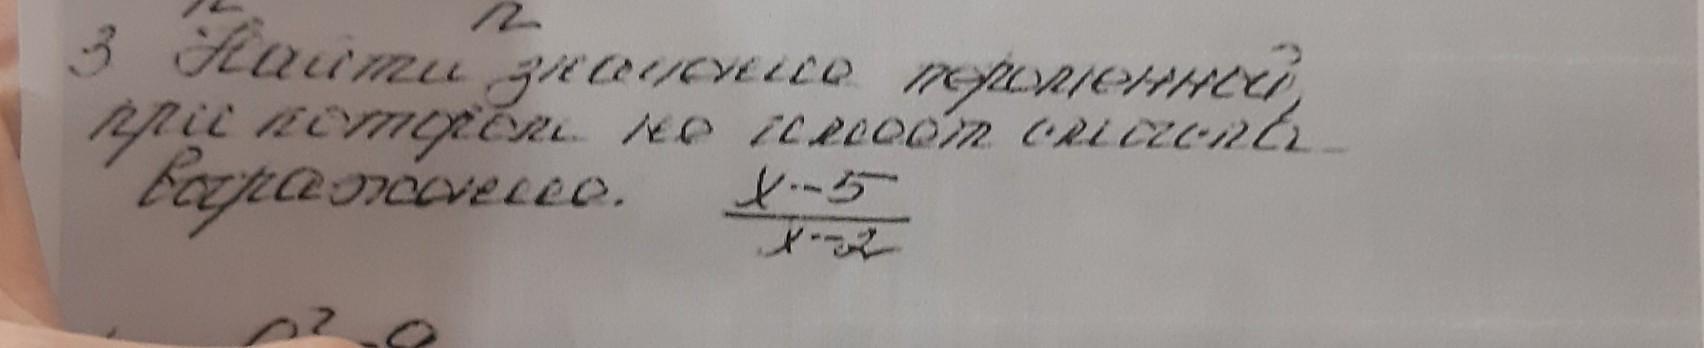 3 Найти значение переменной,
при котором не имеет смысла
выражение. x-5/x-2